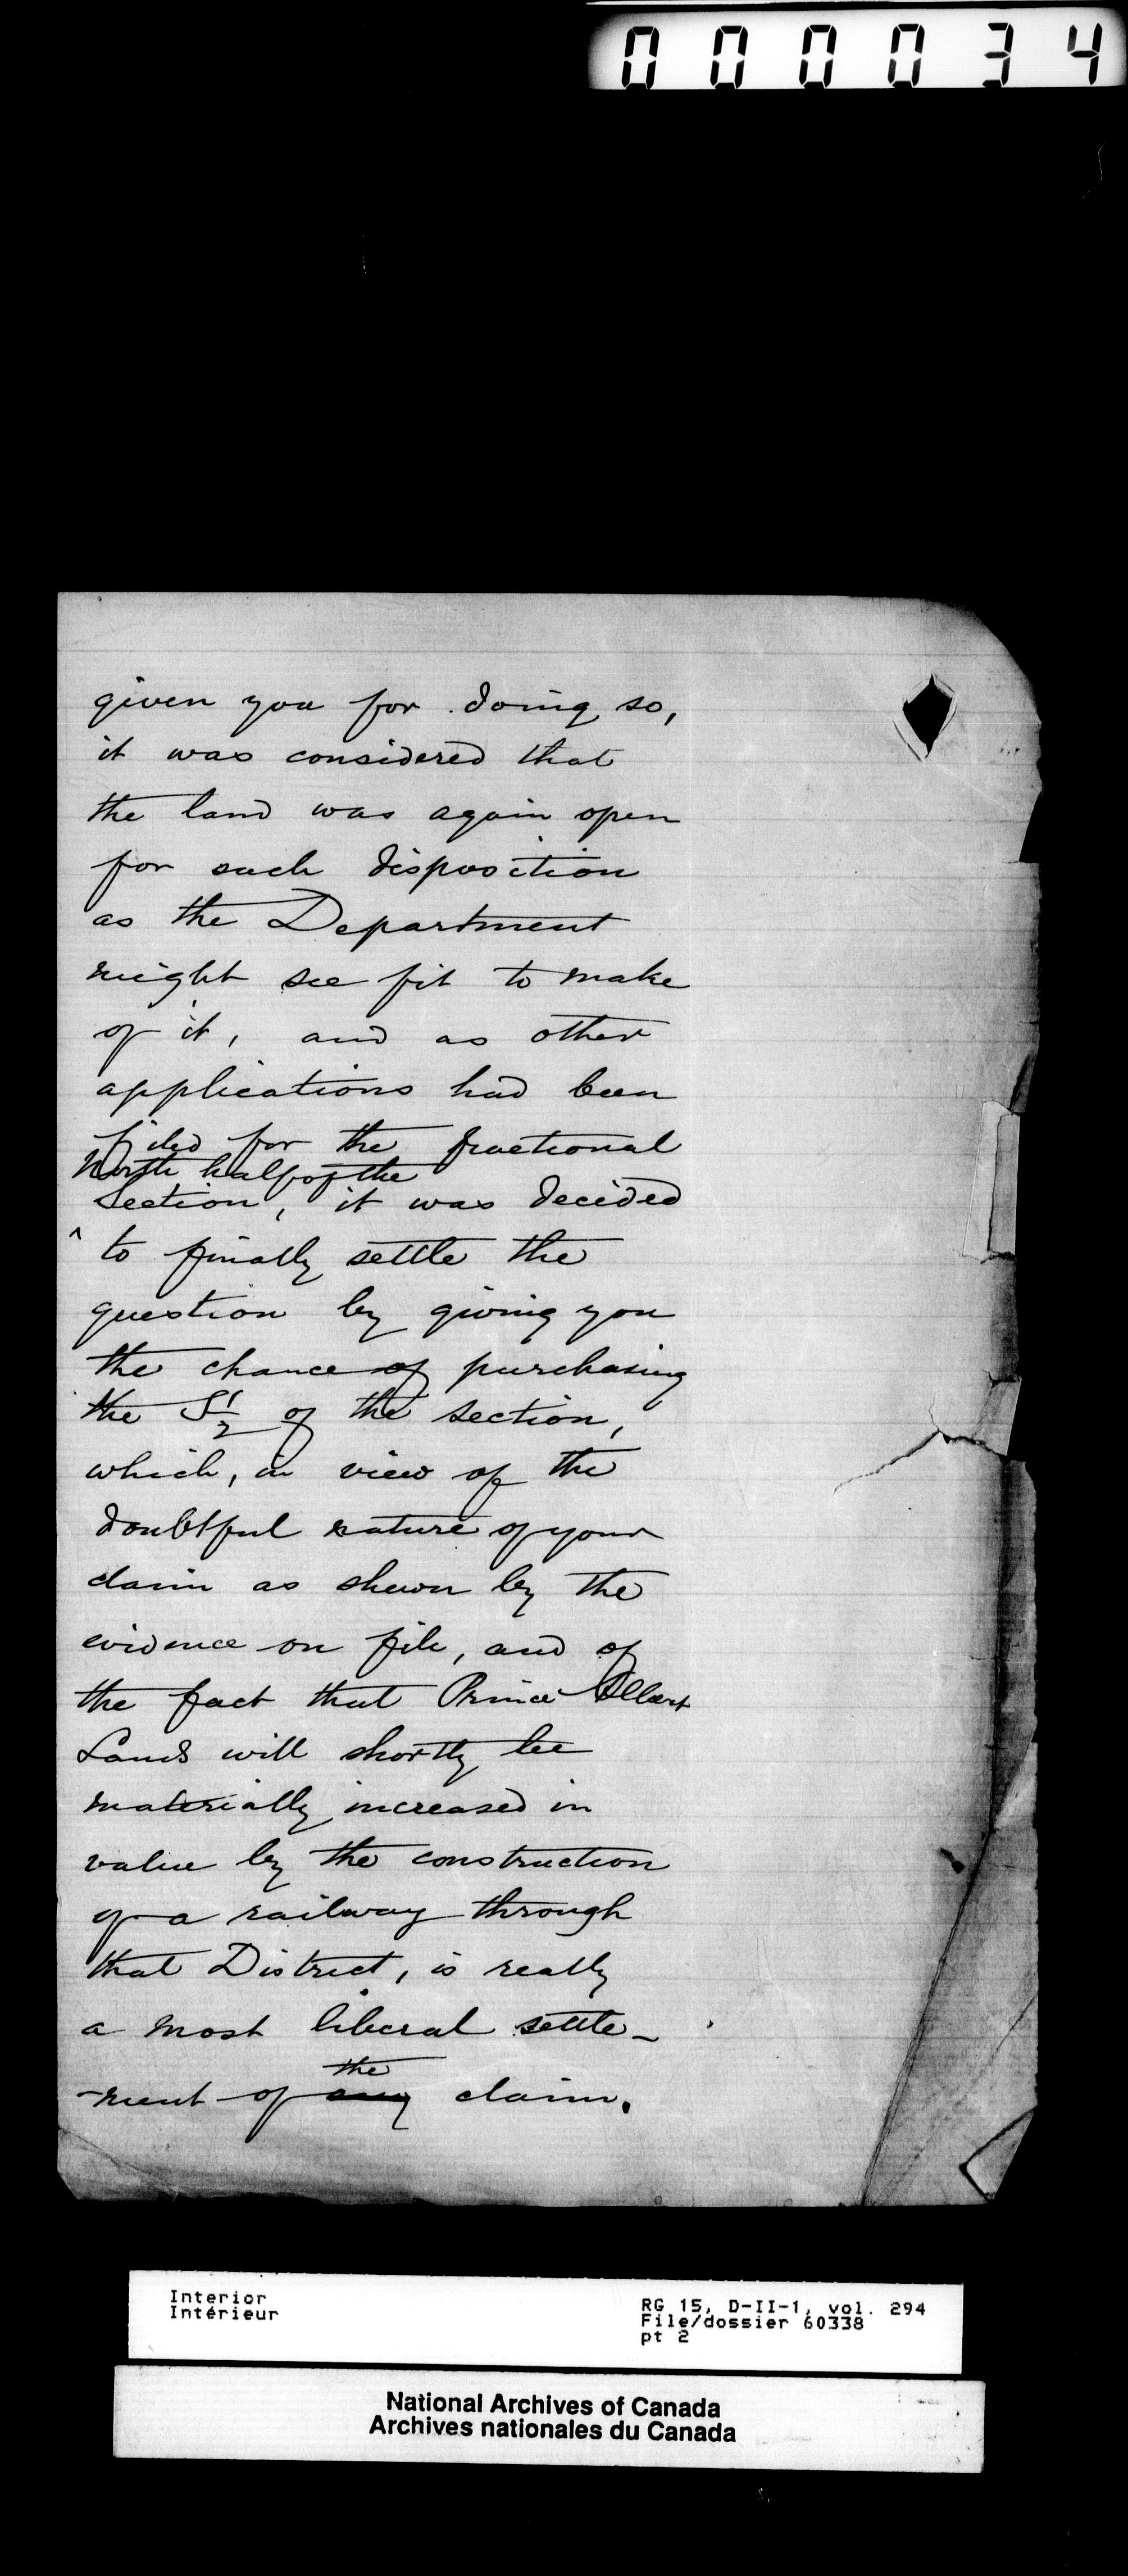 000034
given you for doing so,
it was considered that
the land was again open
for such disposition
as the Department
might see fit to make
of it, and as other
applications had been
filed for the fractional
North half of the
Section, it was decided
^ to finally settle the
question by giving you
the chance of purchasing
the S½ of the section,
which, in view of the
doubtful nature of your
claim as shewn by the
evidence on file, and of
the fact that Prince Albert
Lands will shortly be
materially increased in
value by the construction
of a railway through
that District, is really
a most liberal settle-
the
-ment of any claim.
Interior
Intérieur
RG 15, D-II-1, vol. 294
File/dossier 60338
pt 2
National Archives of Canada
Archives nationales du Canada